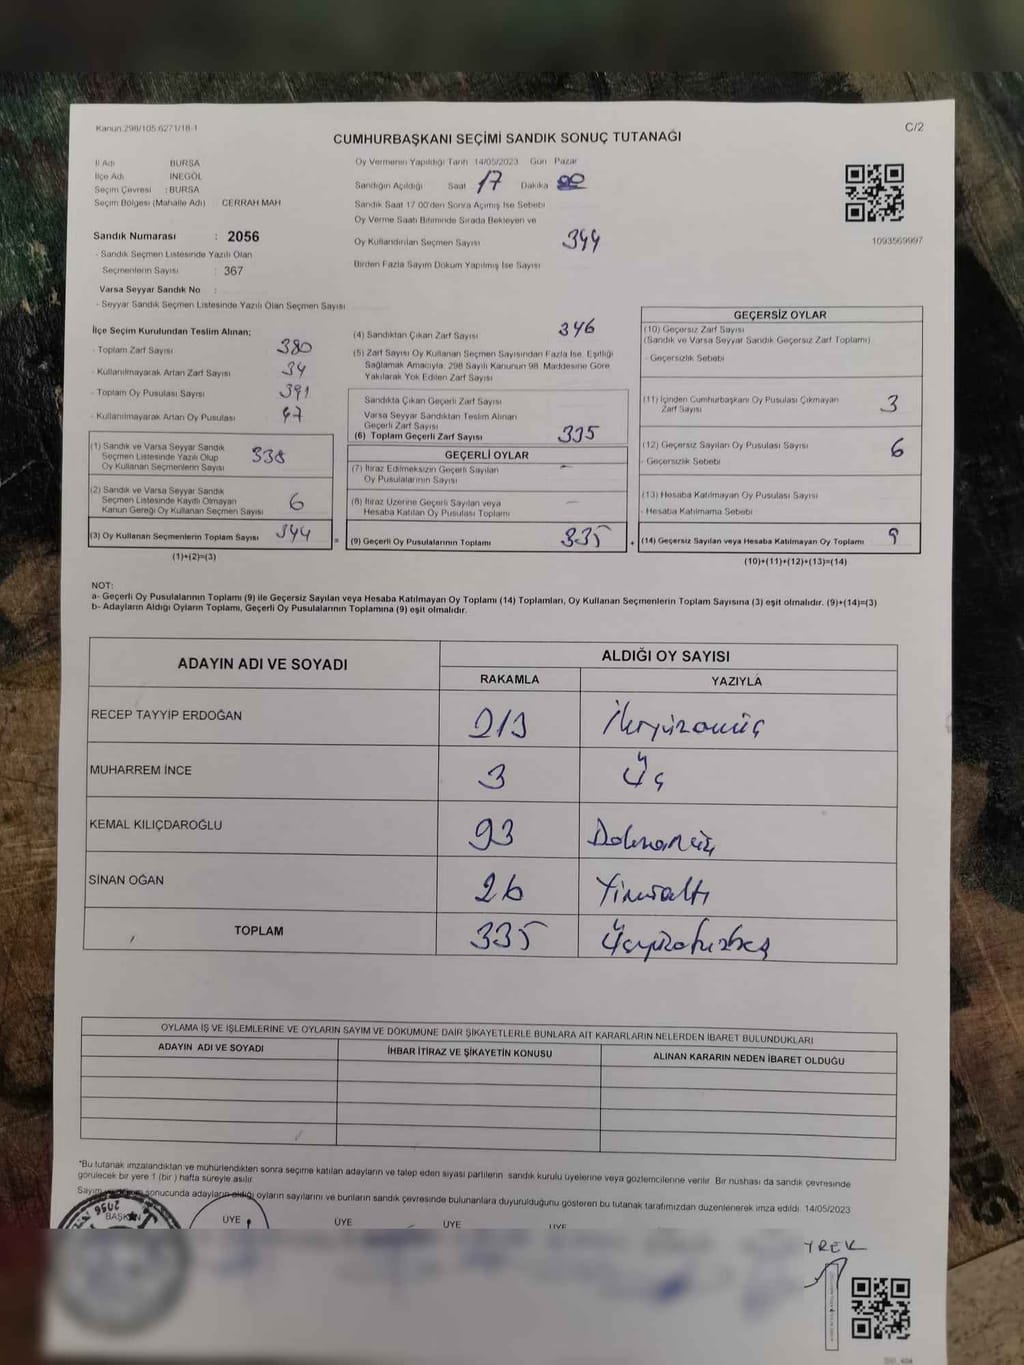 Kanun:298/105.6271/18-1
C/2
CUMHURBAŞKANI SEÇİMİ SANDIK SONUÇ TUTANAĞI
İl Adı BURSA
İlçe Adı İNEGÖL
Seçim Çevresi : BURSA
Seçim Bölgesi (Mahalle Adı) CERRAH MAH
Sandık Numarası : 2056
- Sandık Seçmen Listesinde Yazılı Olan
Seçmenlerin Sayısı : 367
Varsa Seyyar Sandık No :
- Seyyar Sandık Seçmen Listesinde Yazılı Olan Seçmen Sayısı
Oy Vermenin Yapıldığı Tarih 14/05/2023 Gün Pazar
Sandığın Açıldığı Saat 17 Dakika
Sandık Saat 17:00'den Sonra Açımış İse Sebebi
Oy Verme Saati Bitiminde Sırada Bekleyen ve
Oy Kullandırılan Seçmen Sayısı 344
Birden Fazla Sayım Döküm Yapılmış İse Sayısı
1093569997
İlçe Seçim Kurulundan Teslim Alınan;
- Toplam Zarf Sayısı 380
- Kullanılmayarak Artan Zarf Sayısı 34
- Toplam Oy Pusulası Sayısı 391
- Kullanılmayarak Artan Oy Pusulası 47
(1) Sandık ve Varsa Seyyar Sandık
Seçmen Listesinde Yazılı Olup
Oy Kullanan Seçmenlerin Sayısı 338
(2) Sandık ve Varsa Seyyar Sandık
Seçmen Listesinde Kayıtlı Olmayan
Kanun Gereği Oy Kullanan Seçmen Sayısı 6
(3) Oy Kullanan Seçmenlerin Toplam Sayısı 344
(1)+(2)=(3)
(4) Sandıktan Çıkan Zarf Sayısı 346
(5) Zarf Sayısı Oy Kullanan Seçmen Sayısından Fazla İse, Eşitliği
Sağlamak Amacıyla, 298 Sayılı Kanunun 98. Maddesine Göre
Yakılarak Yok Edilen Zarf Sayısı
Sandıkta Çıkan Geçerli Zarf Sayısı
Varsa Seyyar Sandıktan Teslim Alınan
Geçerli Zarf Sayısı
(6) Toplam Geçerli Zarf Sayısı 335
GEÇERLİ OYLAR
(7) İtiraz Edilmeksizin Geçerli Sayılan
Oy Pusulasının Sayısı –
(8) İtiraz Üzerine Geçerli Sayılan veya
Hesaba Katılan Oy Pusulası Toplamı –
= (9) Geçerli Oy Pusulalarının Toplamı 335
GEÇERSİZ OYLAR
(10) Geçersiz Zarf Sayısı
(Sandık ve Varsa Seyyar Sandık Geçersiz Zarf Toplamı)
- Geçersizlik Sebebi
(11) İçinden Cumhurbaşkanı Oy Pusulası Çıkmayan
Zarf Sayısı 3
(12) Geçersiz Sayılan Oy Pusulası Sayısı 6
- Geçersizlik Sebebi
(13) Hesaba Katılmayan Oy Pusulası Sayısı
- Hesaba Katılmama Sebebi
+ (14) Geçersiz Sayılan veya Hesaba Katılmayan Oy Toplamı 9
(10)+(11)+(12)+(13)=(14)
NOT:
a- Geçerli Oy Pusulalarının Toplamı (9) ile Geçersiz Sayılan veya Hesaba Katılmayan Oy Toplamı (14) Toplamları, Oy Kullanan Seçmenlerin Toplam Sayısına (3) eşit olmalıdır. (9)+(14)=(3)
b- Adayların Aldığı Oyların Toplamı, Geçerli Oy Pusulalarının Toplamına (9) eşit olmalıdır.
ADAYIN ADI VE SOYADI
ALDIĞI OY SAYISI
RAKAMLA YAZIYLA
RECEP TAYYİP ERDOĞAN 213 İkiyüzonüç
MUHARREM İNCE 3 Üç
KEMAL KILIÇDAROĞLU 93 Doksanüç
SİNAN OĞAN 26 Yirmialtı
TOPLAM 335 Üçyüzotuzbeş
OYLAMA İŞ VE İŞLEMLERİNE VE OYLARIN SAYIM VE DÖKÜMÜNE DAİR ŞİKAYETLERLE BUNLARA AİT KARARLARIN NELERDEN İBARET BULUNDUKLARI
ADAYIN ADI VE SOYADI İHBAR İTİRAZ VE ŞİKAYETİN KONUSU ALINAN KARARIN NEDEN İBARET OLDUĞU
*Bu tutanak imzalandıktan ve mühürlendikten sonra seçime katılan adayların ve talep eden siyasi partilerin sandık kurulu üyelerine veya gözlemcilerine verilir. Bir nüshası da sandık çevresinde
görülecek bir yere 1 (bir) hafta süreyle asılır.
Sayım sonucunda adayların aldığı oyların sayılarını ve bunların sandık çevresinde bulunanlara duyurulduğunu gösteren bu tutanak tarafımızdan düzenlenerek imza edildi. 14/05/2023
2056
BAŞKAN ÜYE ÜYE ÜYE ÜYE